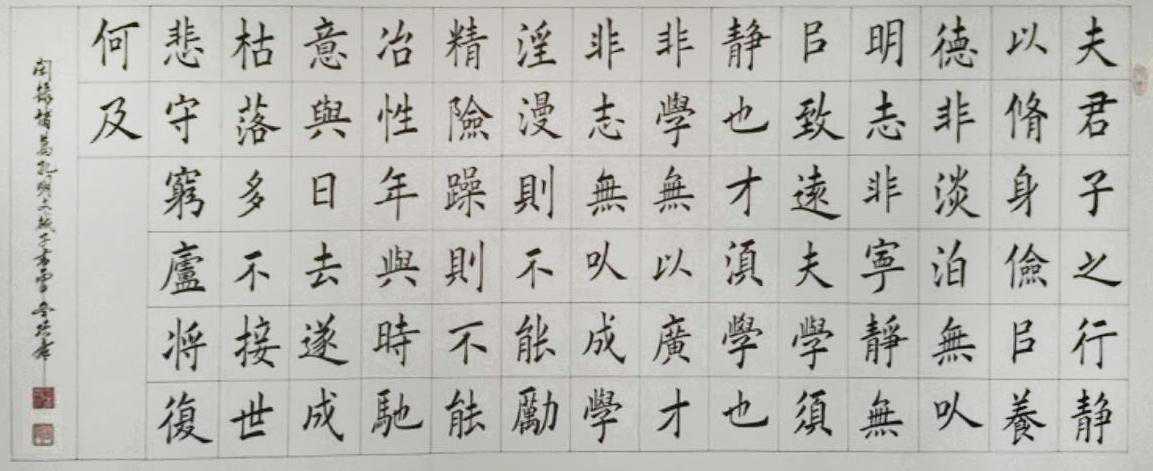 夫君子之行静
以脩身儉㠯養
德非淡泊無㕥
明志非寧靜無
㠯致遠夫學須
静也才湏學也
非學無以廣才
非志無㕥成學
淫漫則不能勵
精險躁則不能
冶性年與時馳
意與日去遂成
枯落多不接世
悲守窮廬将復
何及